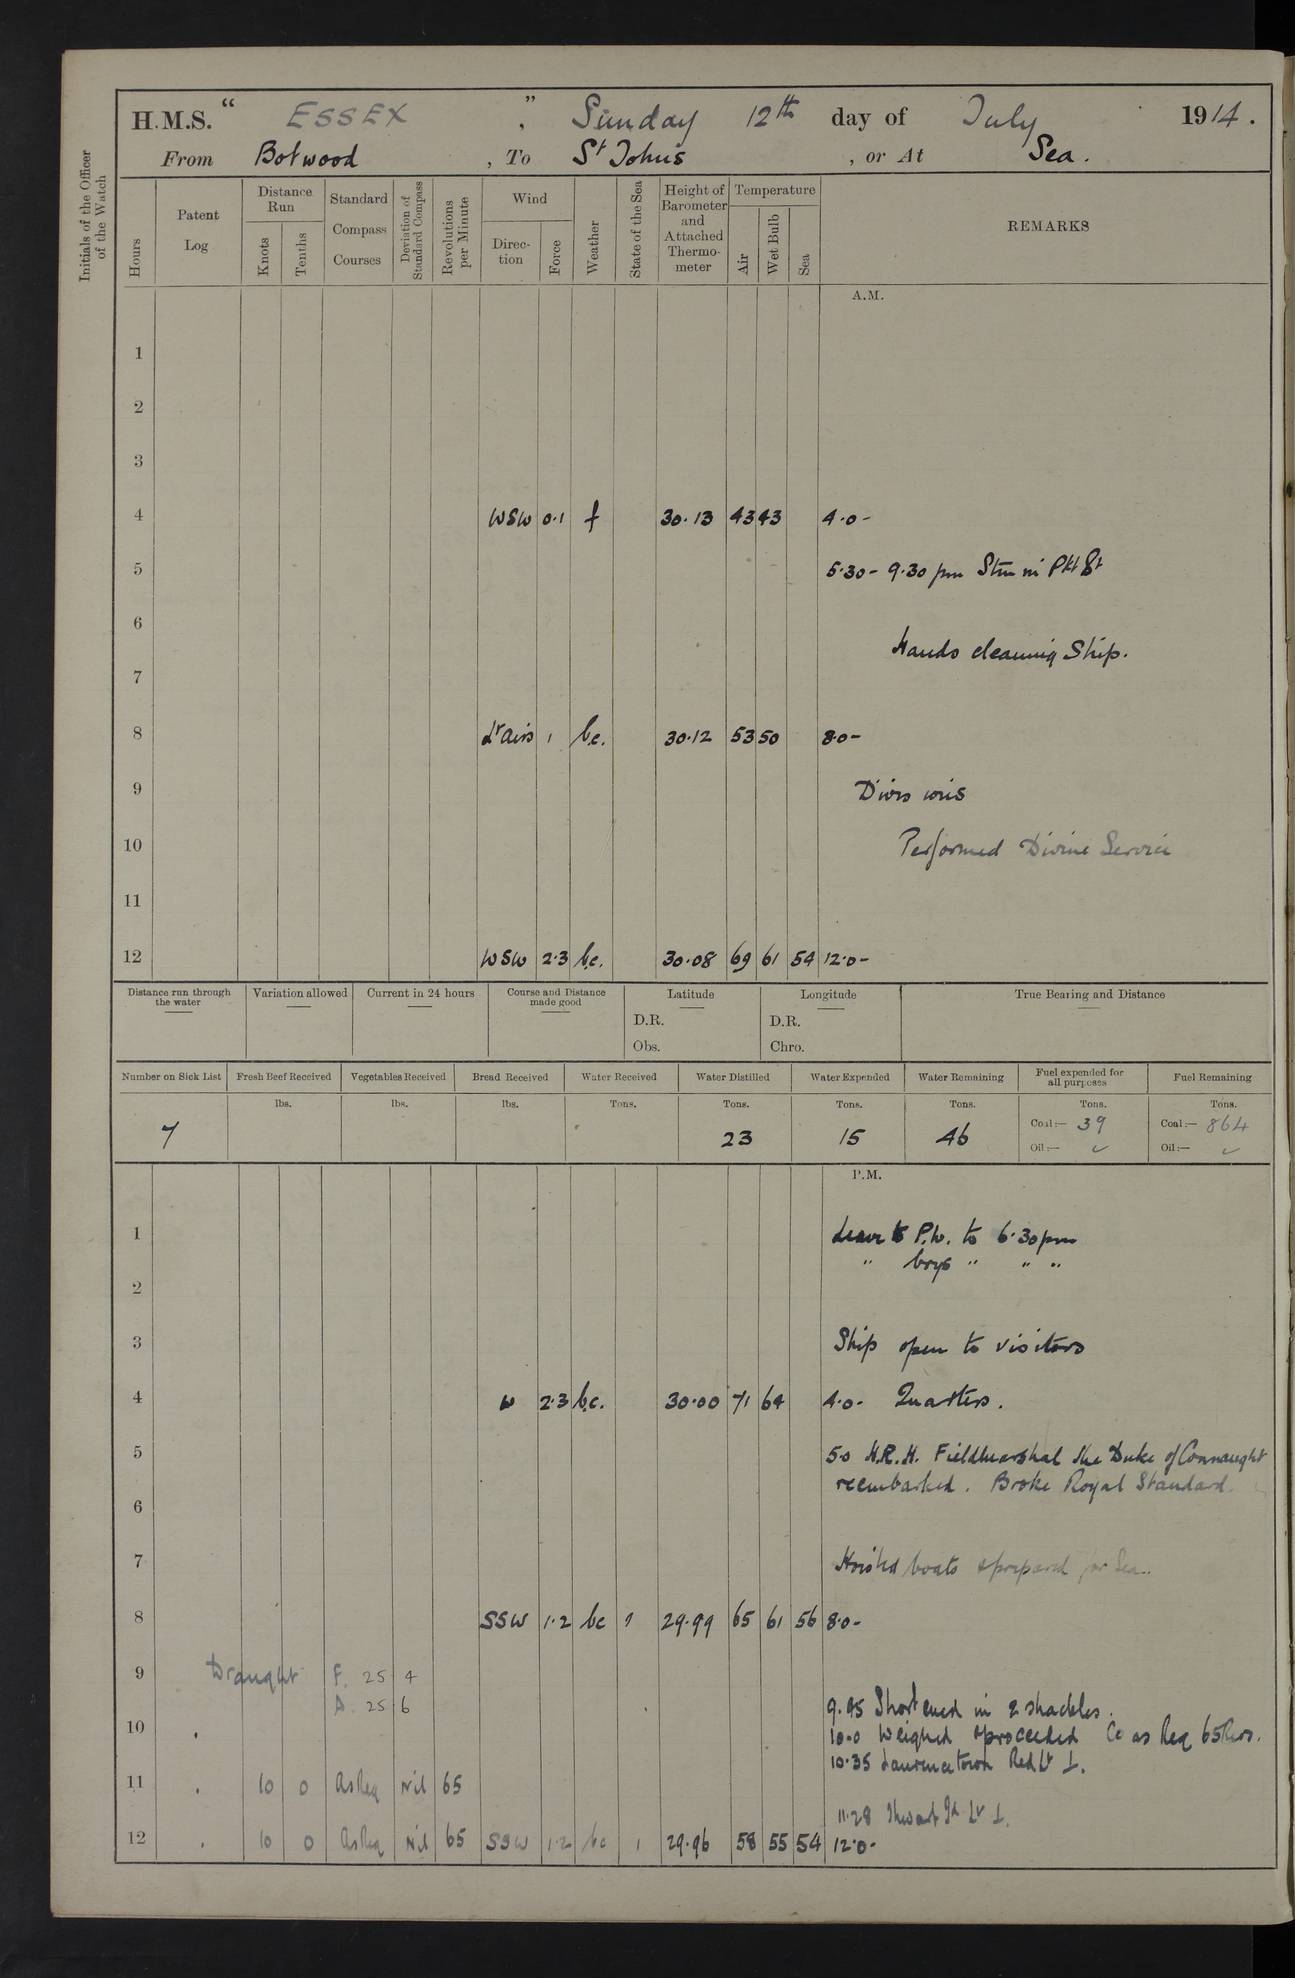 H.M.S. " ESSEX ", Sunday 12th day of July 1914.
From Botwood, To St Johns, or At Sea.
Initials of the Officer
of the Watch
Hours
Patent
Log
Distance
Run
Knots
Tenths
Standard
Compass
Courses
Deviation of
Standard Compass
Revolutions
per Minute
Wind
Direc-
tion
Force
Weather
State of the Sea
Height of
Barometer
and
Attached
Thermo-
meter
Temperature
Air
Wet Bulb
Sea
REMARKS
A.M.
1
2
3
4 WSW 0.1 f 30.13 43 43 4.0-
5 5.30- 9.30 pm Stm in Pkt Bt
6
Hands cleaning Ship.
7
8 Lt airs 1 b.c. 30.12 53 50 8.0-
9 Divns
10 Performed Divine Service
11
12 WSW 2.3 b.c. 30.08 69 61 54 12.0-
Distance run through
the water
Variation allowed
Current in 24 hours
Course and Distance
made good
Latitude
D.R.
Obs.
Longitude
D.R.
Chro.
True Bearing and Distance
Number on Sick List
7
Fresh Beef Received
lbs.
Vegetables Received
lbs.
Bread Received
lbs.
Water Received
Tons.
Water Distilled
Tons.
23
Water Expended
Tons.
15
Water Remaining
Tons.
46
Fuel expended for
all purposes
Tons.
Coal:— 39
Oil:—
Fuel Remaining
Tons.
Coal:— 864
Oil:—
P.M.
1 Leave to P.W. to 6.30 pm
" boys " " "
2
3 Ship open to visitors
4 W 2.3 b.c. 30.00 71 64 4.0- Quarters.
5 5.0 H.R.H. Fieldmarshal the Duke of Connaught
reembarked. Broke Royal Standard.
6
7 Hoisted boats & prepared for Sea.
8 SSW 1.2 bc 1 29.99 65 61 56 8.0-
9 Draught F. 25 4
A. 25 6
9.45 Shortened in 2 shackles.
10 10.0 Weighed & proceeded Co as Req 65 Revs.
10.35 Laurencetown Red Lt ⊥.
11 10 0 As Req Nil 65
11.28 Id Lt ⊥.
12 10 0 As Req Nil 65 SSW 1.2 bc 1 29.96 58 55 54 12.0-